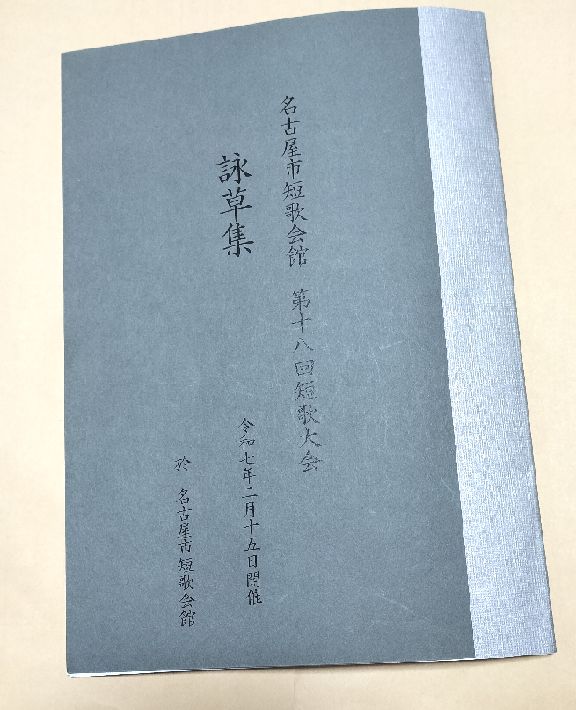 名古屋市短歌会館 第十八回短歌大会
詠草集
令和七年二月十五日開催
於 名古屋市短歌会館